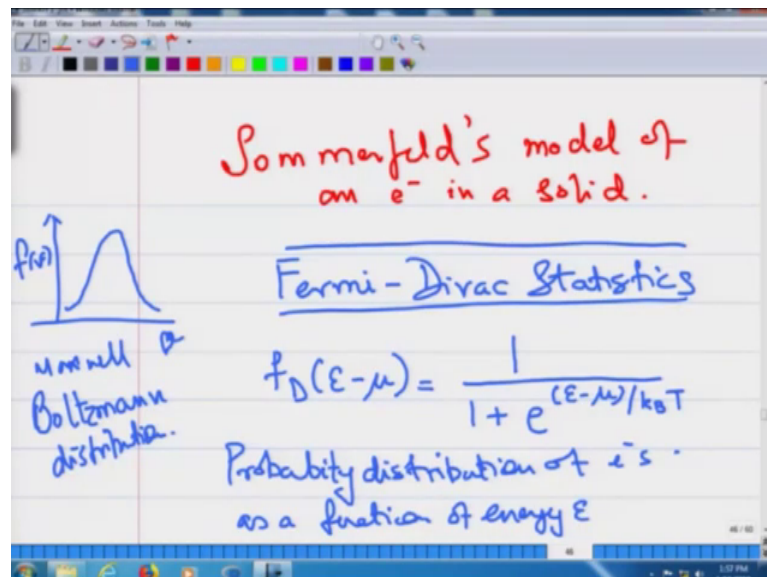 File Edit View Insert Actions Tools Help
Sommerfeld's model of
an e⁻ in a solid.
f(v)
v
Maxwell
Boltzmann
distribution.
Fermi-Dirac Statistics
f_D(ε-μ) = 1 / (1 + e^{(ε-μ)/k_BT})
Probabity distribution of e⁻s.
as a function of energy ε
46 / 60
46
1:57 PM